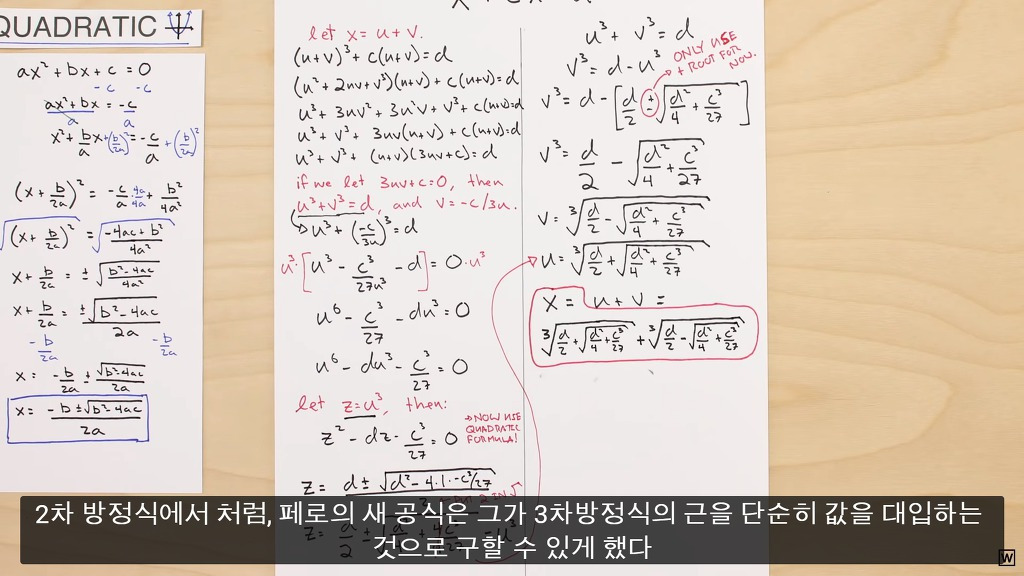 QUADRATIC
ax² + bx + c = 0
-c -c
ax² + bx = -c
a a
x² + b/a x + (b/2a)² = -c/a + (b/2a)²
(x + b/2a)² = -c/a · 4a/4a + b²/4a²
√(x + b/2a)² = √(-4ac + b²)/4a²
x + b/2a = ± √(b² - 4ac)/4a²
x + b/2a = ± √b² - 4ac / 2a
- b/2a - b/2a
x = -b/2a ± √b² - 4ac / 2a
x = -b ± √b² - 4ac / 2a
let x = u + v.
(u + v)³ + c(u + v) = d
(u² + 2uv + v²)(u + v) + c(u + v) = d
u³ + 3uv² + 3u²v + v³ + c(u + v) = d
u³ + v³ + 3uv(u + v) + c(u + v) = d
u³ + v³ + (u + v)(3uv + c) = d
if we let 3uv + c = 0, then
u³ + v³ = d, and v = -c/3u.
u³ + (-c/3u)³ = d
u³ · [u³ - c³/27u³ - d] = 0 · u³
u⁶ - c³/27 - du³ = 0
u⁶ - du³ - c³/27 = 0
let z = u³, then:
z² - dz - c³/27 = 0
→ NOW USE
QUADRATIC
FORMULA!
z = d ± √d² - 4·1·-c³/27
u³ + v³ = d
v³ = d - u³
ONLY USE
+ ROOT FOR
NOW.
v³ = d - [d/2 ± √d²/4 + c³/27]
v³ = d/2 - √d²/4 + c³/27
v = ³√d/2 - √d²/4 + c³/27
u = ³√d/2 + √d²/4 + c³/27
x = u + v =
³√d/2 + √d²/4 + c³/27 + ³√d/2 - √d²/4 + c³/27
2차 방정식에서 처럼, 페로의 새 공식은 그가 3차방정식의 근을 단순히 값을 대입하는
것으로 구할 수 있게 했다
W